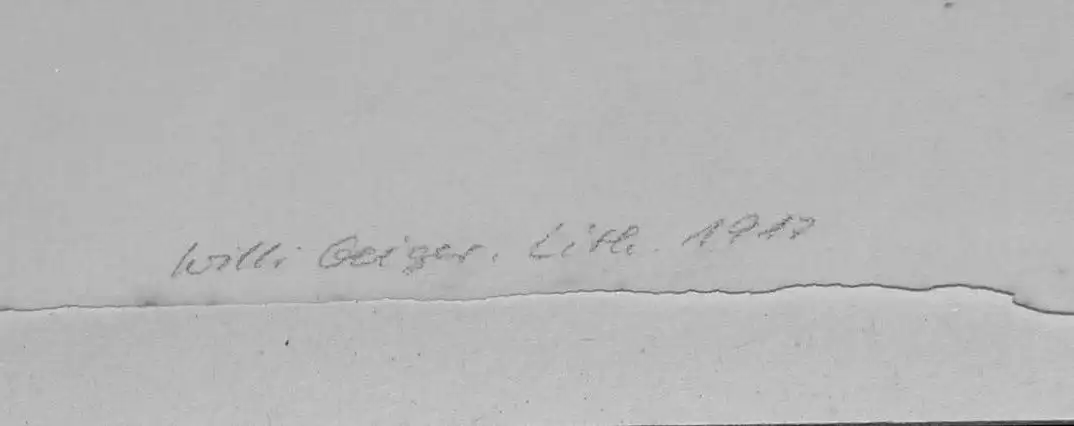 Willi Geiger. Lith. 1917